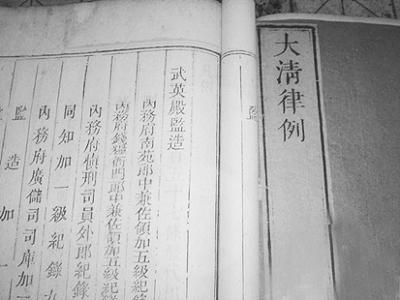 大清律例
監
武英殿監造
內務府南苑郎中兼佐領加五級紀錄
內務府錢糧衙門郎中兼佐領加五級紀
內務府慎刑司員外郎紀錄
同知加一級紀錄
內務府廣儲司司庫加
監造加一